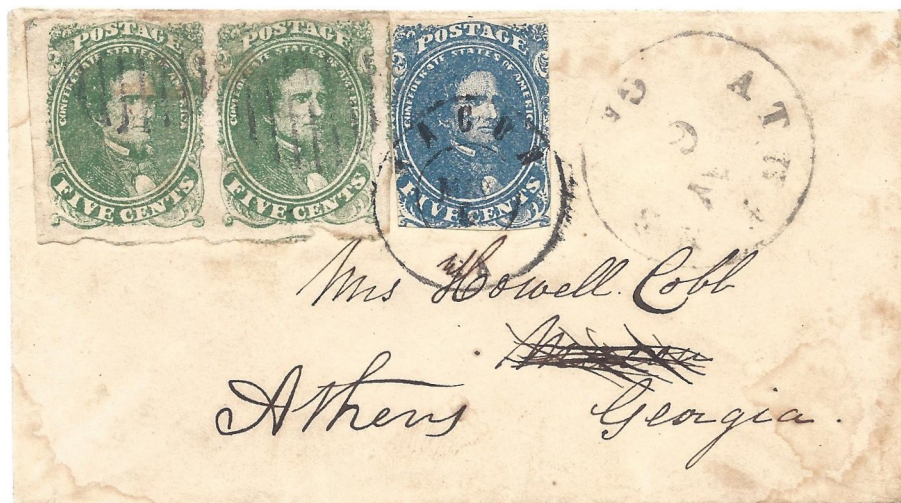 POSTAGE
CONFEDERATE STATES OF AMERICA
FIVE CENTS
POSTAGE
CONFEDERATE STATES OF AMERICA
FIVE CENTS
POSTAGE
CONFEDERATE STATES OF AMERICA
FIVE CENTS
Mrs Howell Cobb
Athens Georgia.